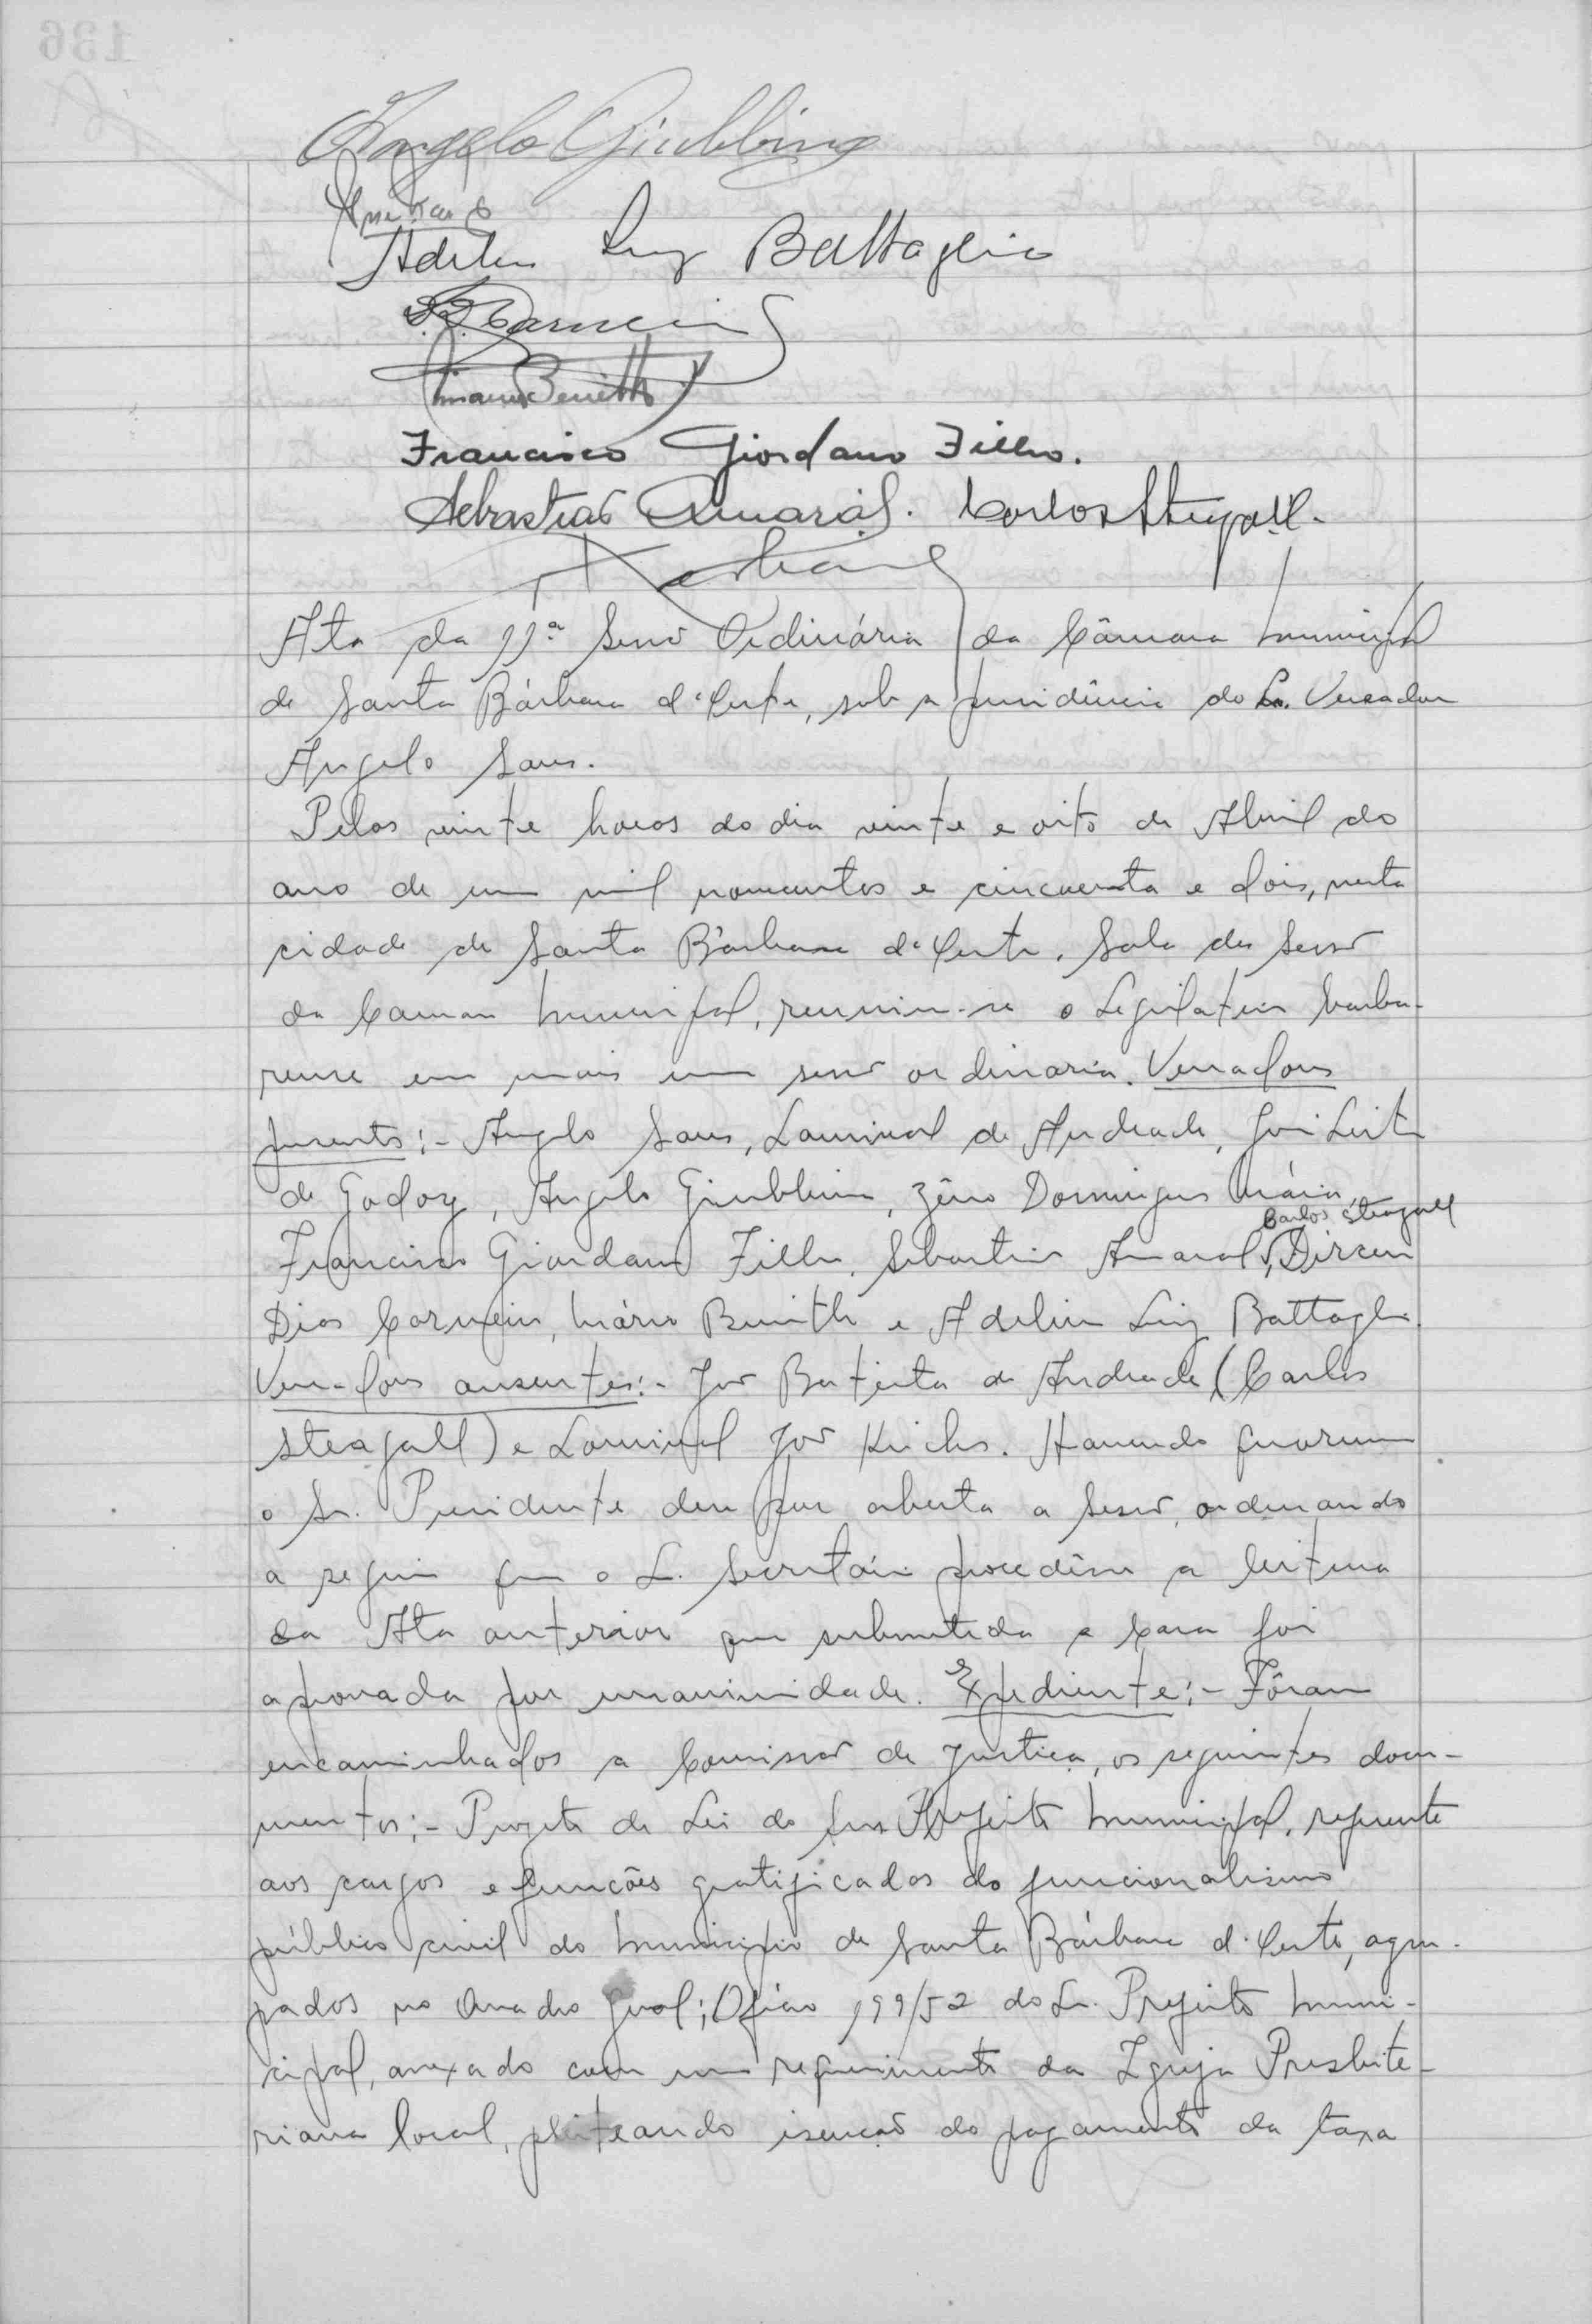 Angelo Giubbina
Adelin Luiz Battaglia
D. D. Carneiro
Mario Benitth
Francisco Giordano Filho.
Sebastião Amaral. Carlos Steagall.
Ata da 11ª Sessão Ordinária da Câmara Municipal
de Santa Bárbara d'Oeste, sob a presidência do Sr. Vereador
Angelo Sans.
Pelas vinte horas do dia vinte e oito de Abril do
ano de um mil novecentos e cincoenta e dois, nesta
cidade de Santa Bárbara d'Oeste, Sala das Sessão
da Camara Municipal, reuniu-se o Legislativo barba-
rense em mais uma sessão ordinaria. Vereadores
presentes:- Angelo Sans, Lourival de Andrade, José Leite
de Godoy, Angelo Giubbina, Zêno Domingues Maia,
Carlos Steagall
Francisco Giordano Filho, Sebastião Amaral, Dirceu
Dias Carneiro, Mário Benitth e Adelin Luiz Battaglia.
Vereadores ausentes:- João Batista de Andrade (Carlos
Steagall) e Lourival José Kirches. Havendo quorum
o Sr. Presidente deu por aberta a Sessão, ordenando
a seguir que o Sr. Secretário procedêsse a leitura
da Ata anterior que submetida a Casa foi
aprovada por unanimidade. Expediente:- Fôram
encaminhados a Comissão de Justiça, os seguintes docu-
mentos:- Projeto de Lei do Snr. Prefeito Municipal, referente
aos cargos e funções gratificadas do funcionalismo
público civil do Municipio de Santa Bárbara d'Oeste, agru-
pados no Quadro Geral; Ofício 199/52 do Sr. Prefeito Muni-
cipal, anexado com um requerimento da Igreja Presbite-
riana local, pleiteando isenção do pagamento da taxa